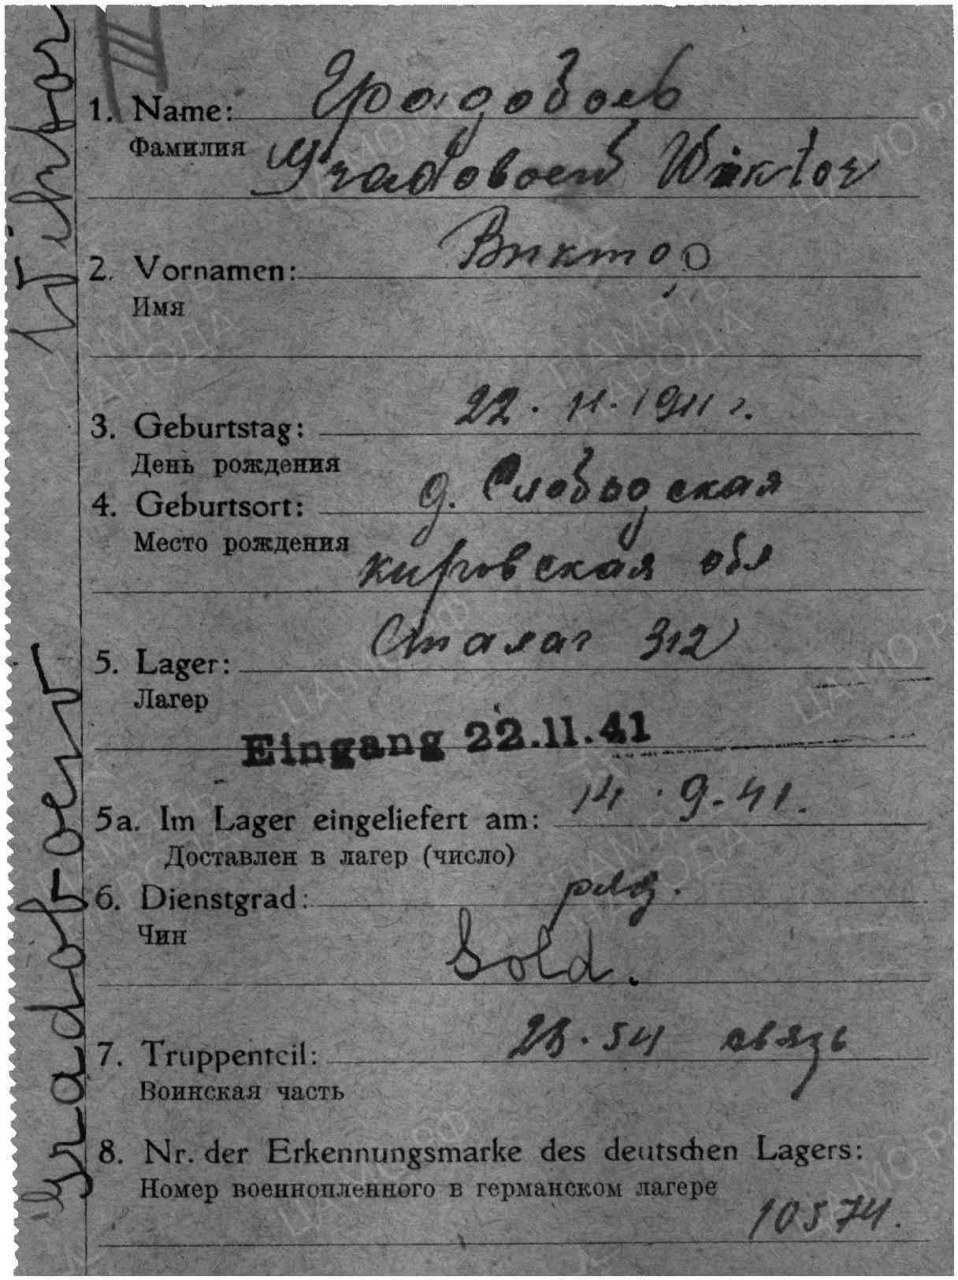 1. Name: Градобоев
Фамилия Gradoboew Wiktor
2. Vornamen: Виктор
Имя
3. Geburtstag: 22.11.1911 г.
День рождения
4. Geburtsort: д. Слободская
Место рождения
кировская обл
5. Lager: Сталаг 312
Лагер
Eingang 22.11.41
5a. Im Lager eingeliefert am: 14.9.41.
Доставлен в лагер (число)
6. Dienstgrad: ряд.
Чин
Sold.
7. Truppenteil: связь
Воинская часть
8. Nr. der Erkennungsmarke des deutschen Lagers:
Номер военнопленного в германском лагере
10574.
Gradoboew Viktor
ЦАМО.РФ
ПАМЯТЬ
НАРОДА